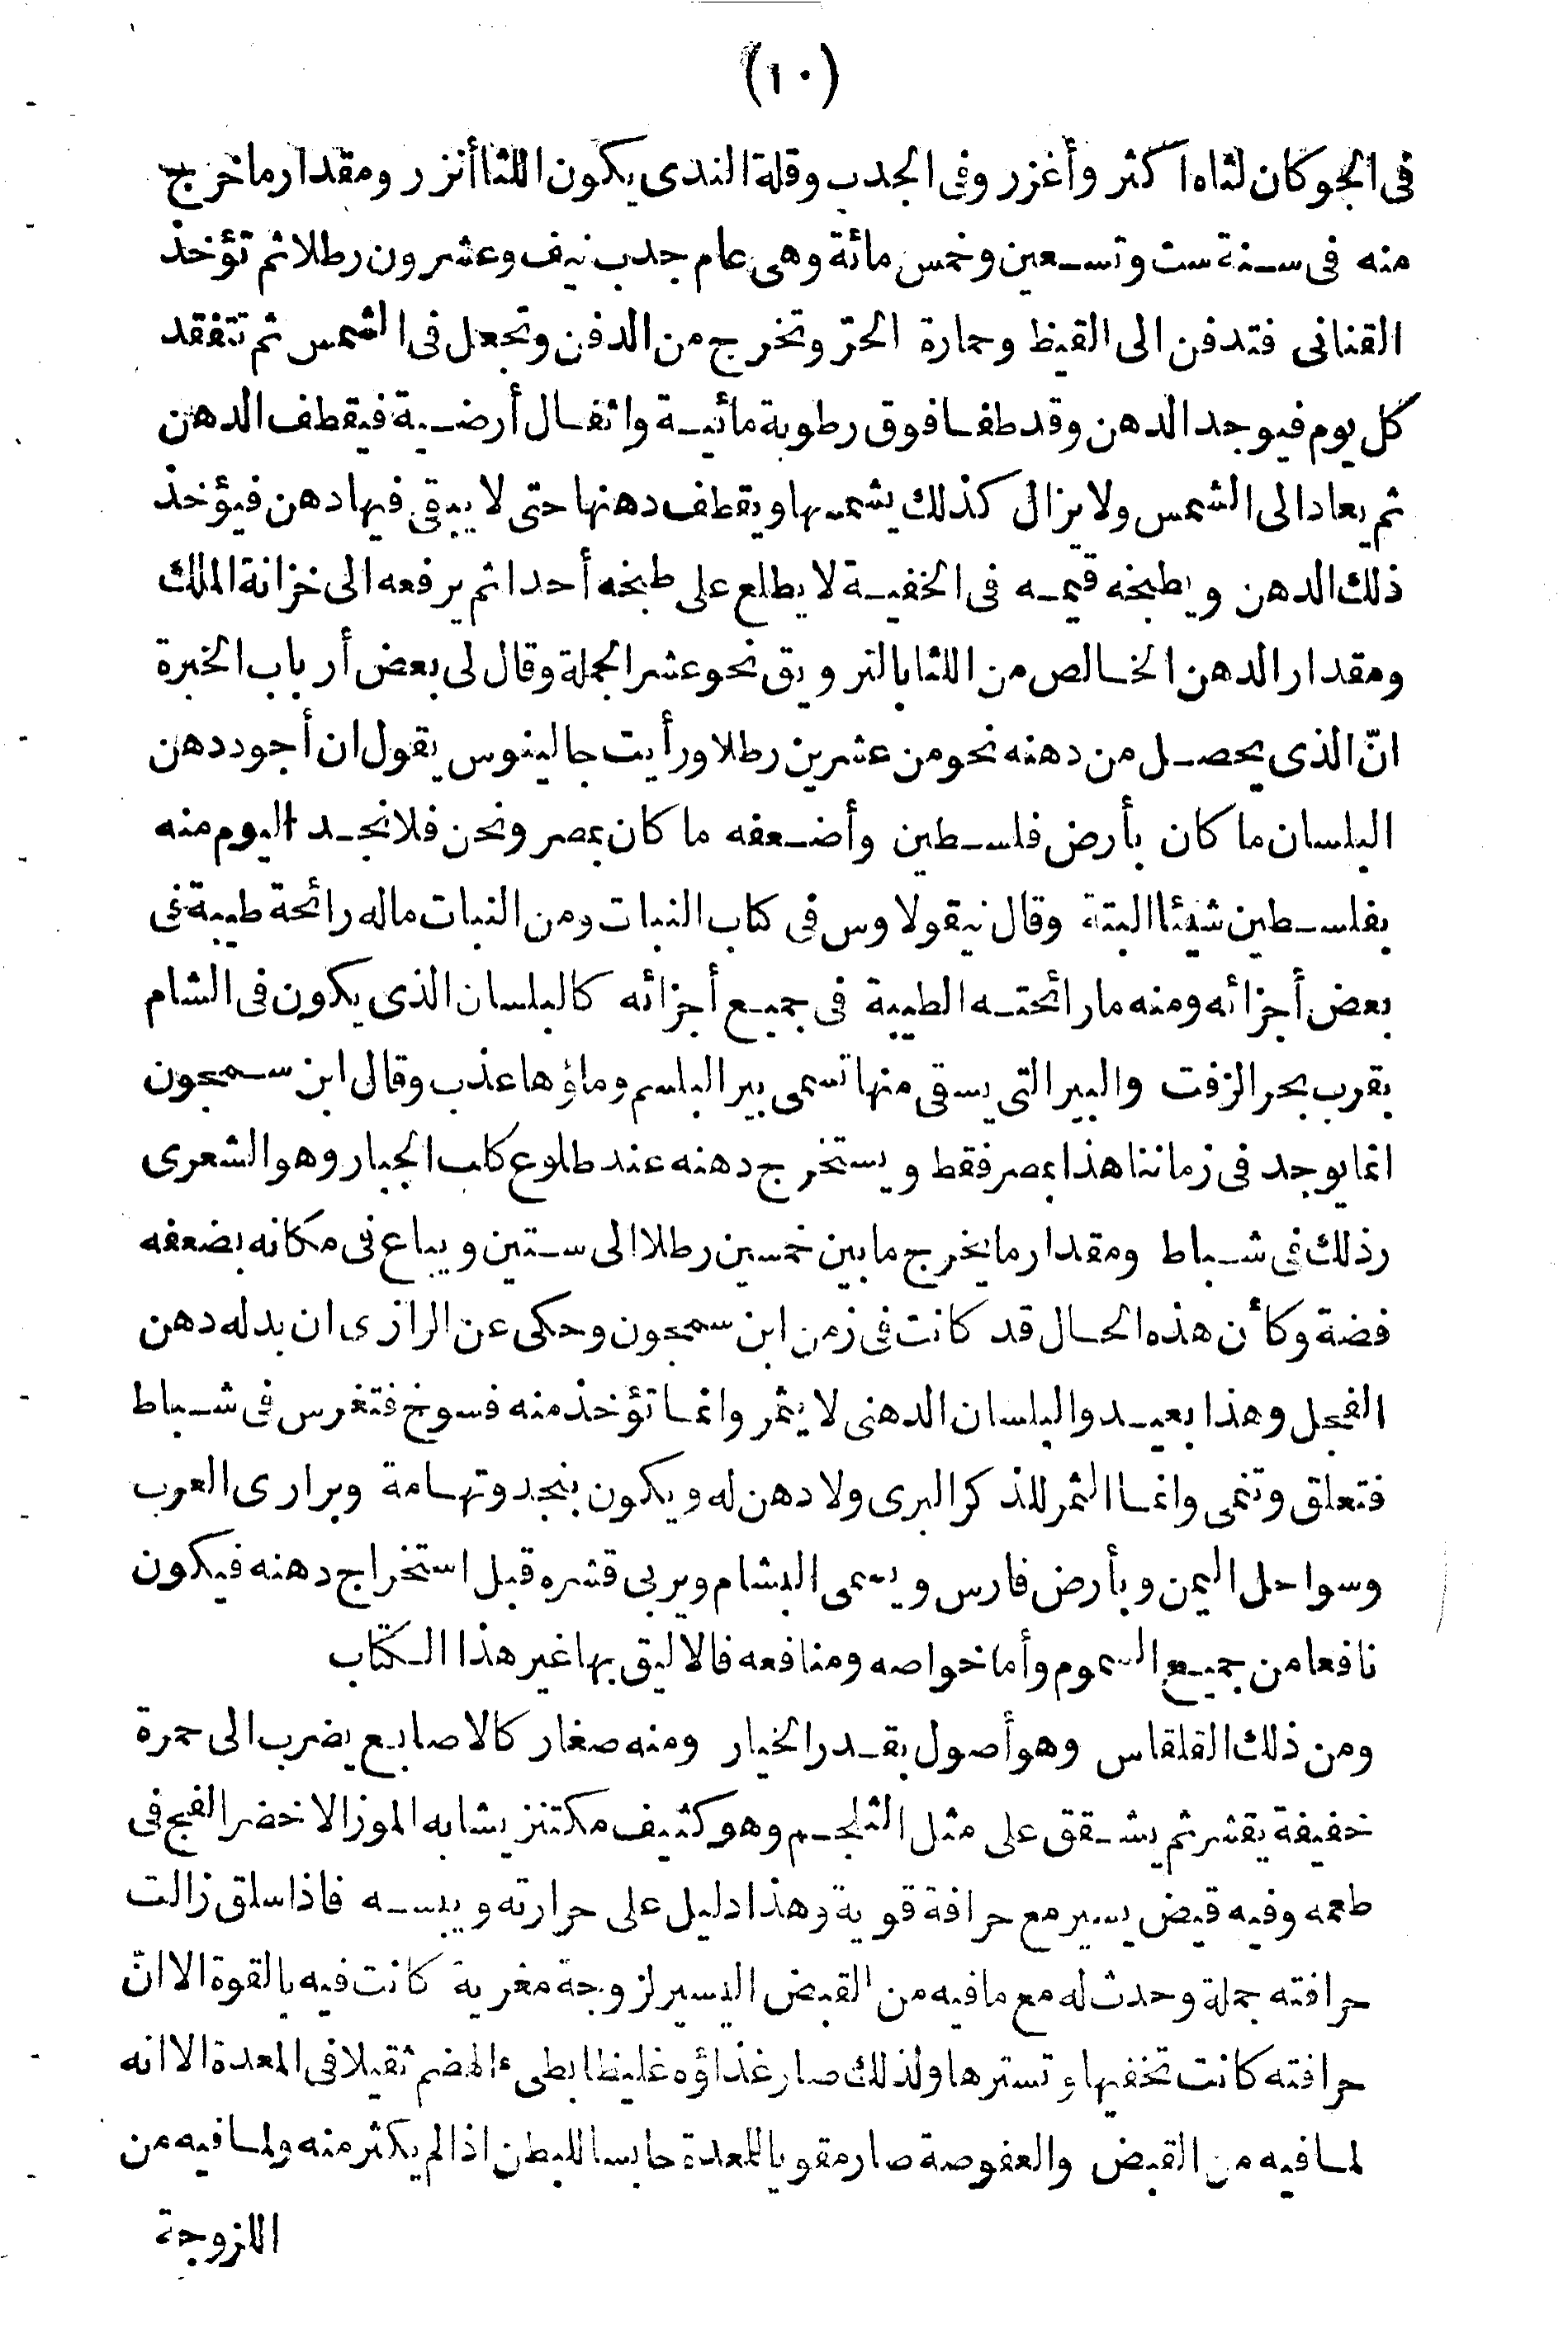 (١٠)
فى الجو كان لثاه اكثر وأغزر وفى الجدب وقلة الندى يكون اللثا أنزر ومقدار ما خرج
منه فى سنة ست وتسعين وخمس مائة وهى عام جدب نيف وعشرون رطلا ثم تؤخذ
القنانى فتدفن الى القيظ وحمارة الحرّ وتخرج من الدفن وتجعل فى الشمس ثم تتفقد
كل يوم فيوجد الدهن وقد طفا فوق رطوبة مائية واثفال أرضية فيقطف الدهن
ثم يعاد الى الشمس ولا يزال كذلك يشمسها ويقطف دهنها حتى لا يبقى فيها دهن فيؤخذ
ذلك الدهن ويطبخه قيمه فى الخفية لا يطلع على طبخه أحدا ثم يرفعه الى خزانة الملك
ومقدار الدهن الخالص من اللثا بالترويق نحو عشر الجملة وقال لى بعض أرباب الخبرة
انّ الذى يحصل من دهنه نحو من عشرين رطلا ورأيت جالينوس يقول ان أجود دهن
البلسان ما كان بأرض فلسطين وأضعفه ما كان بمصر ونحن فلا نجد اليوم منه
بفلسطين شيئا البتة وقال نيقولاوس فى كتاب النبات ومن النبات ماله رائحة طيبة فى
بعض أجزائه ومنه ما رائحته الطيبة فى جميع أجزائه كالبلسان الذى يكون فى الشام
بقرب بحر الزفت والبير التى يسقى منها تسمى بير البلسم وماؤها عذب وقال ابن سمجون
انما يوجد فى زماننا هذا بمصر فقط ويستخرج دهنه عند طلوع كلب الجبار وهو الشعرى
رذلك فى شباط ومقدار ما يخرج ما بين خمسين رطلا الى ستين ويباع فى مكانه بضعفه
فضة وكأن هذه الحال قد كانت فى زمن ابن سمجون وحكى عن الرازى ان بدله دهن
الفجل وهذا بعيد والبلسان الدهنى لا يثمر وانما تؤخذ منه فسوخ فتغرس فى شباط
فتعلق وتنمى وانما الثمر للذكر البرى ولا دهن له ويكون بنجد وتهامة وبرارى العرب
وسواحل اليمن وبأرض فارس ويسمى البشام ويربى قشره قبل استخراج دهنه فيكون
نافعا من جميع السموم وأما خواصه ومنافعه فالاليق بها غير هذا الكتاب
ومن ذلك القلقاس وهو أصول بقدر الخيار ومنه صغار كالاصابع يضرب الى حمرة
خفيفة يقشر ثم يشقق على مثل الثلجم وهو كثيف مكتنز يشابه الموز الاخضر الفج فى
طعمه وفيه قبض يسير مع حرافة قوية وهذا دليل على حرارته ويبسه فاذا سلق زالت
حرافته جملة وحدث له مع ما فيه من القبض اليسير لزوجة مغرية كانت فيه بالقوة الا انّ
حرافته كانت تخفيها وتسترها ولذلك صار غذاؤه غليظا بطىء الهضم ثقيلا فى المعدة الا انه
لما فيه من القبض والعفوصة صار مقويا للمعدة حابسا للبطن اذا لم يكثر منه ولما فيه من
اللزوجة